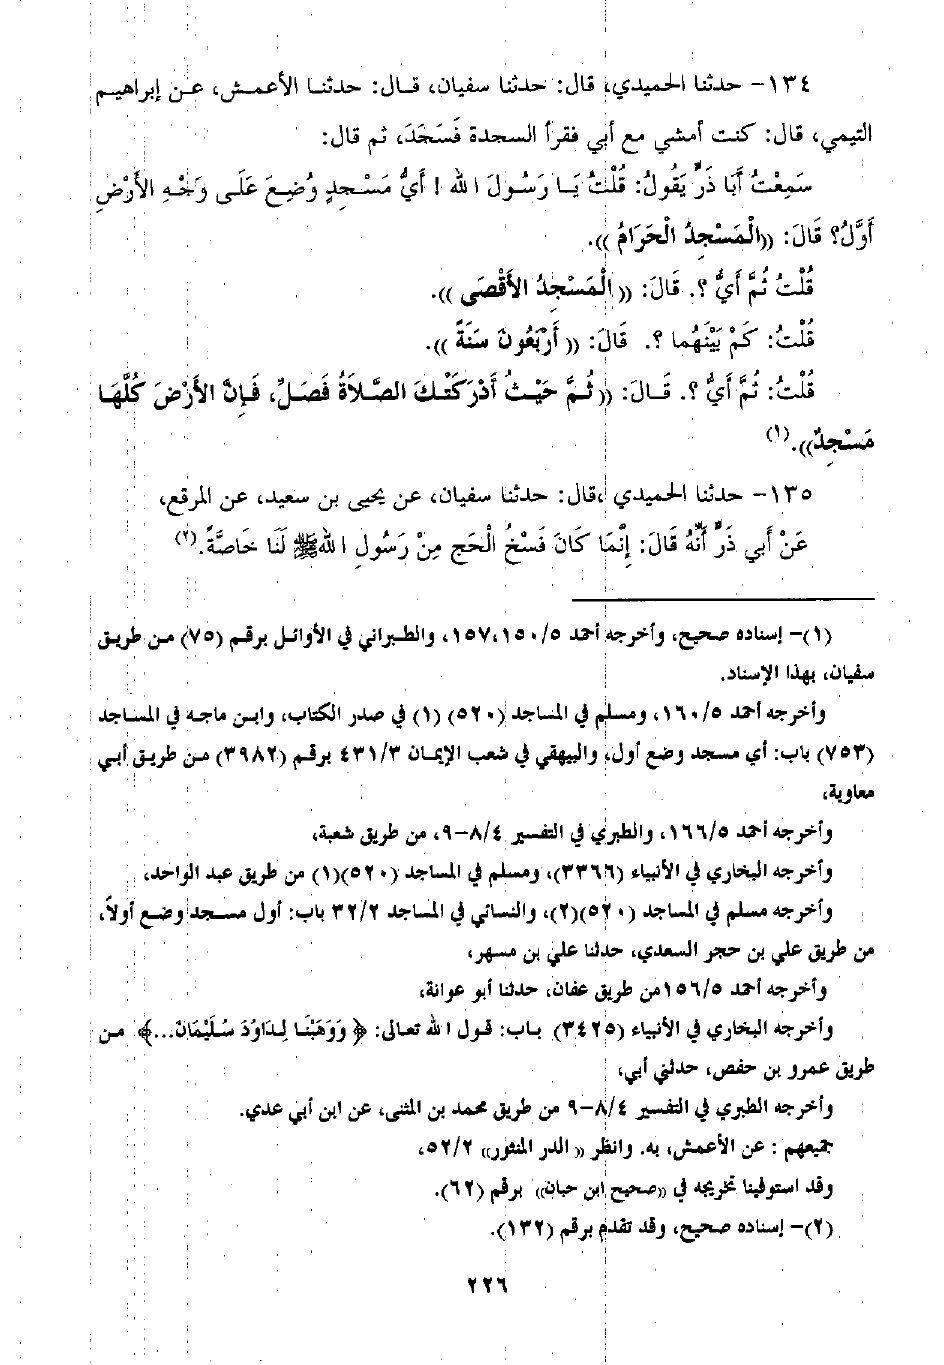 ١٣٤- حدثنا الحميدي، قال: حدثنا سفيان، قال: حدثنا الأعمش، عن إبراهيم
التيمي، قال: كنت أمشي مع أبي فقرأ السجدة فَسَجَدَ، ثم قال:
سَمِعْتُ أَبَا ذَرٍّ يَقُولُ: قُلْتُ يَا رَسُولَ الله ! أَيُّ مَسْجِدٍ وُضِعَ عَلَى وَجْهِ الأَرْضِ
أَوَّلُ؟ قَالَ: ((الْمَسْجِدُ الْحَرَامُ )).
قُلْتُ ثُمَّ أَيُّ ؟. قَالَ: (( الْمَسْجِدُ الأَقْصَى )).
قُلْتُ: كَمْ بَيْنَهُما ؟. قَالَ: (( أَرْبَعُونَ سَنَةً )).
قُلْتُ: ثُمَّ أَيُّ ؟. قَالَ: (( ثُمَّ حَيْثُ أَدْرَكَتْكَ الصَّلاَةُ فَصَلِّ، فَإِنَّ الأَرْضَ كُلَّهَا
مَسْجِدٌ)).(١)
١٣٥- حدثنا الحميدي ،قال: حدثنا سفيان، عن يحيى بن سعيد، عن المرقع،
عَنْ أبي ذَرٍّ أَنَّهُ قَالَ: إِنَّمَا كَانَ فَسْخُ الْحَج مِنْ رَسُولِ اللهﷺ لَنَا خَاصَّةً.(٢)
(١)- إسناده صحيح، وأخرجه أحمد ١٥٧،١٥٠/٥، والطبراني في الأوائل برقم (٧٥) من طريق
سفيان، بهذا الإسناد.
وأخرجه أحمد ١٦٠/٥، ومسلم في المساجد (٥٢٠) (١) في صدر الكتاب، وابن ماجه في المساجد
(٧٥٣) باب: أي مسجد وضع أول، والبيهقي في شعب الإيمان ٤٣١/٣ برقم (٣٩٨٢) من طريق أبي
معاوية،
وأخرجه أحمد ١٦٦/٥، والطبري في التفسير ٨/٤-٩، من طريق شعبة،
وأخرجه البخاري في الأنبياء (٣٣٦٦)، ومسلم في المساجد (٥٢٠)(١) من طريق عبد الواحد،
وأخرجه مسلم في المساجد (٥٢٠)(٢)، والنسائي في المساجد ٣٢/٢ باب: أول مسجد وضع أولاً،
من طريق علي بن حجر السعدي، حدثنا علي بن مسهر،
وأخرجه أحمد ١٥٦/٥من طريق عفان، حدثنا أبو عوانة،
وأخرجه البخاري في الأنبياء (٣٤٢٥) باب: قول الله تعالى: ﴿ وَوَهَبْنَا لِدَاوُدَ سُلَيْمَانَ...﴾ من
طريق عمرو بن حفص، حدثني أبي،
وأخرجه الطبري في التفسير ٨/٤-٩ من طريق محمد بن المثنى، عن ابن أبي عدي.
جميعهم : عن الأعمش، به. وانظر (( الدر المنثور)) ٥٢/٢،
وقد استوفينا تخريجه في ((صحيح ابن حبان)) برقم (٦٢).
(٢)- إسناده صحيح، وقد تقدم برقم (١٣٢).
٢٢٦